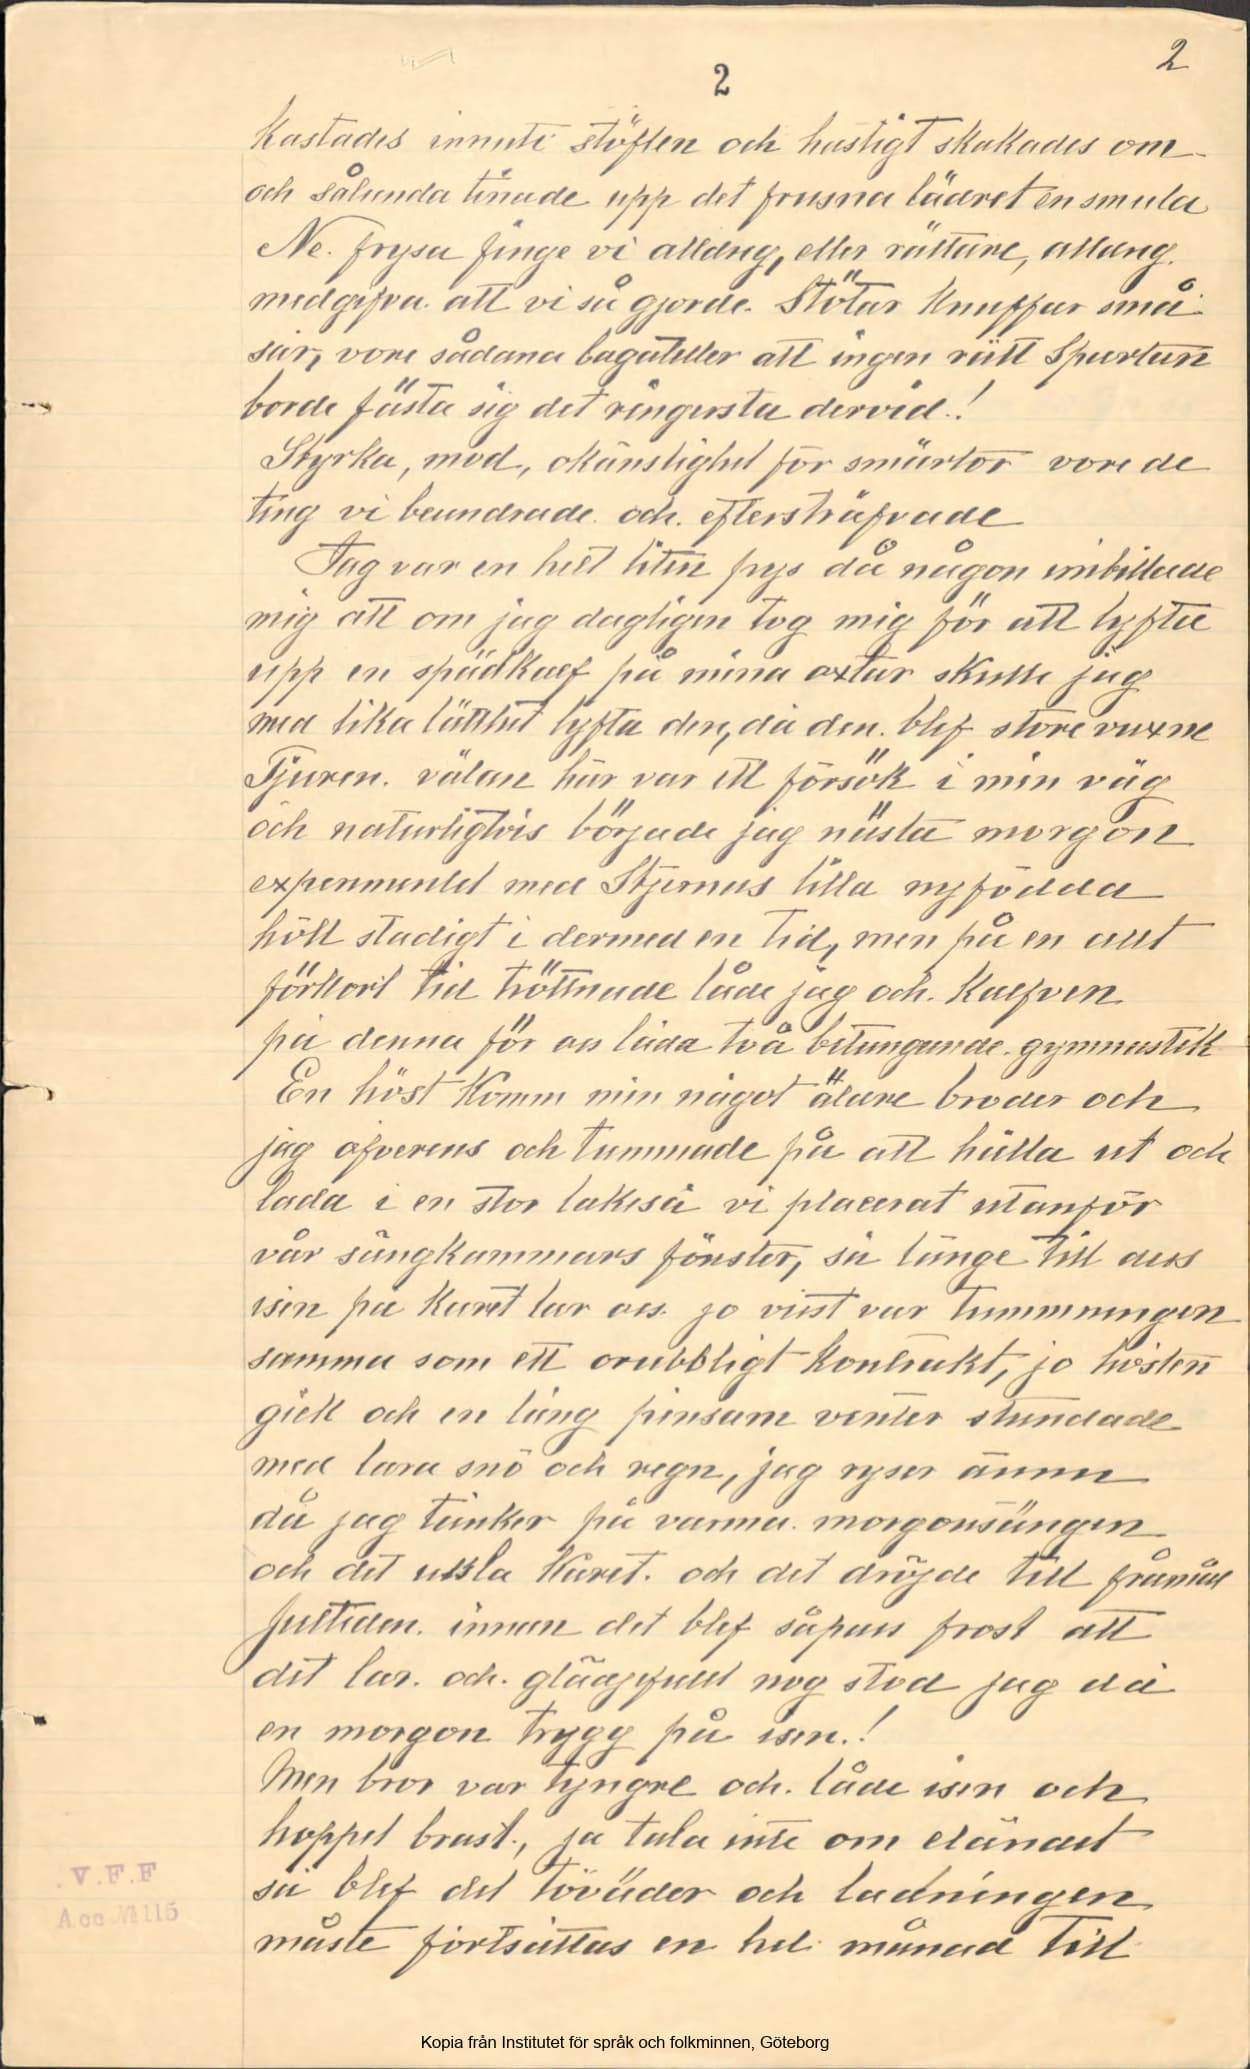 2
2
kastades innuti stöflen och hastigt skakades om
och sålunda tinade upp det frusna lädret en smula
Ne. frysa finge vi alldrig, eller rättare, alldrig
medgifva att vi så gjorde. Stötar knuffar små
sår, vore sådana bagateller att ingen rätt Spartan
borde fästa sig det ringersta dervid.!
Styrka, mod, okänslighet för smärtor vore de
ting vi beundrade och eftersträfvade
Jag var en helt liten pys då någon inbillade
mig att om jag dagligen tog mig för att lyfta
upp en spädkalf på mina axlar skulle jag
med lika lätthet lyfta den, då den blef store vuxne
Tjuren. välan här var ett försök i min väg
och naturligtvis började jag nästa morgon
experimentet med Stjernas lilla nyfödda
höll stadigt i dermed en tid, men på en allt
förkort tid tröttnade både jag och kalfven
på denna för oss båda två betungande gymnastik
En höst komm min något äldre broder och
jag öfverens och tummade på att hålla ut och
bada i en stor lakeså vi placerat utanför
vår sängkammars fönster, så länge till dess
isen på karet bar oss. jo visst var tummningen
samma som ett orubbligt kontrakt, jo hösten
gick och en lång pinsam vinter stundade
med bara snö och regn, jag ryser ännu
då jag tänker på varma morgonsängen
och det usla karet. och det dröjde till framåt
jultiden innan det blef såpass frost att
det bar. och glädjefull nog stod jag då
en morgon trygg på isen.!
Men bror var tyngre och både isen och
hoppet brast., ja tala inte om eländet
så blef det töväder och badningen
måste fortsättas en hel månad till
V.F.F
Acc № 115
Kopia från Institutet för språk och folkminnen, Göteborg